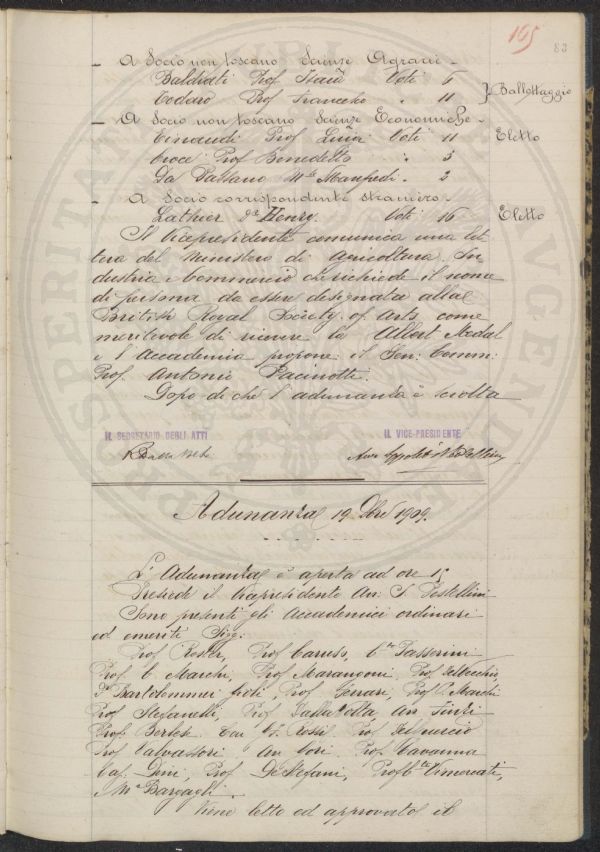 165
83
- A Socio non toscano Scienze Agrarie -
Baldrati Prof. Isaia Voti 6
Todaro Prof Francesco " 11 } Ballottaggio
- A Socio non toscano Scienze Economiche -
Einaudi Prof Luigi Voti 11 Eletto
Croce Prof Benedetto " 3
Da Passano M.se Manfredi " 2
- A Socio corrispondente straniero -
Henry. Voti 16 Eletto
Il Vicepresidente comunica una let
tera del Ministero di Agricoltura In
dustria e Commercio che richiede il nome
di persona da essere designata alla
British Royal Society of Arts come
meritevole di ricevere la Albert Medal
e l'Accademia propone il Sen: Comm:
Prof. Antonio Pacinotti.
Dopo di che l'adunanza è sciolta
IL SEGRETARIO DEGLI ATTI
IL VICE-PRESIDENTE
Adunanza 19 Xbre 1909.
L'Adunanza è aperta ad ore 15
Presiede il Vicepresidente Av. I Pestellini
Sono presenti gli Accademici ordinari
ed emeriti Sigg:
Prof. Roster, Prof Caruso, C.te Passerini
Prof. E Marchi, Prof Marangoni, Prof. Del Vecchio,
Bartolommei Gioli, Prof Ferrari, Prof. P. Marchi
Prof Stefanelli, Prof Dalla Volta, Av Finzi
Prof. Bertelli Rossi Prof
Prof Valvassori Av Gori Prof. Cavanna
Cav. Dini, Prof De Stefani, Prof C.te Vimercati,
M.se Bargagli.
Viene letto ed approvato il